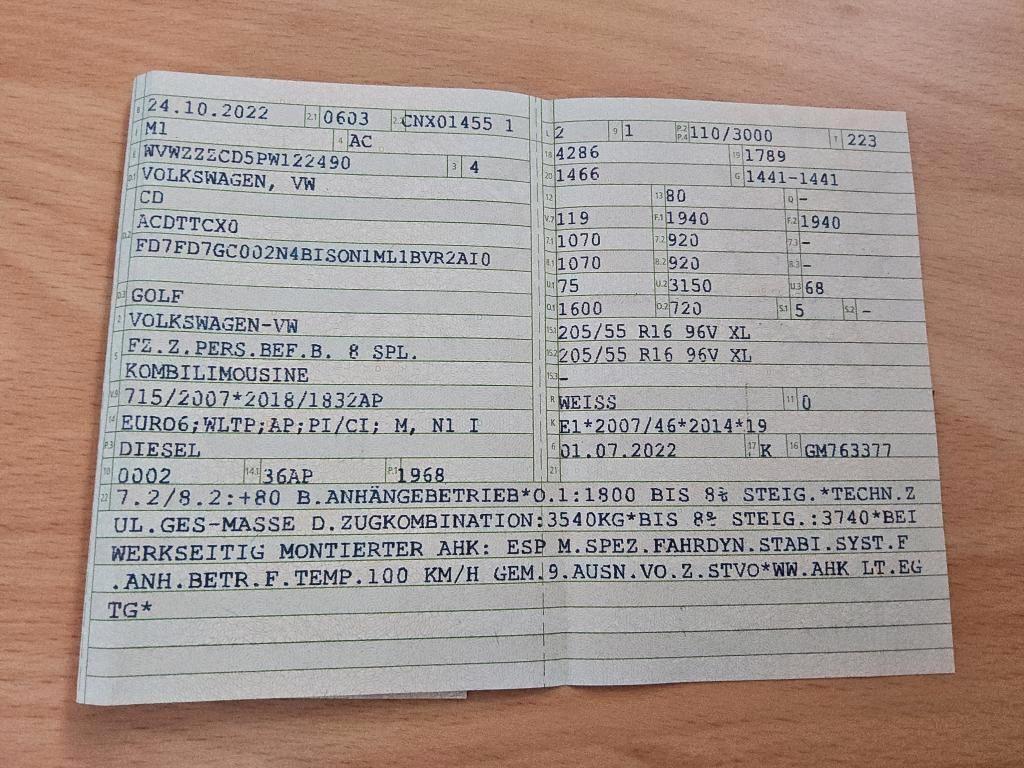 B 24.10.2022 2.1 0603 2.2 CNX01455 1
J M1 4 AC
E WVWZZZCD5PW122490 3 4
D.1 VOLKSWAGEN, VW
CD
D.2 ACDTTCX0
FD7FD7GC002N4BISON1ML1BVR2AI0
D.3 GOLF
2 VOLKSWAGEN-VW
5 FZ.Z.PERS.BEF.B. 8 SPL.
KOMBILIMOUSINE
V.9 715/2007*2018/1832AP
14 EURO6;WLTP;AP;PI/CI; M, N1 I
P.3 DIESEL
10 0002 14.1 36AP P.1 1968
L 2 9 1 P.2 P.4 110/3000 T 223
18 4286 19 1789
20 1466 G 1441-1441
12 13 80 Q -
V.7 119 F.1 1940 F.2 1940
7.1 1070 7.2 920 7.3 -
8.1 1070 8.2 920 8.3 -
U.1 75 U.2 3150 U.3 68
O.1 1600 O.2 720 S.1 5 S.2 -
15.1 205/55 R16 96V XL
15.2 205/55 R16 96V XL
15.3 -
R WEISS 11 0
K E1*2007/46*2014*19
6 01.07.2022 17 K 16 GM763377
21
22 7.2/8.2:+80 B.ANHÄNGEBETRIEB*O.1:1800 BIS 8% STEIG.*TECHN.Z
UL.GES-MASSE D.ZUGKOMBINATION:3540KG*BIS 8% STEIG.:3740*BEI
WERKSEITIG MONTIERTER AHK: ESP M.SPEZ.FAHRDYN.STABI.SYST.F
.ANH.BETR.F.TEMP.100 KM/H GEM.9.AUSN.VO.Z.STVO*WW.AHK LT.EG
TG*